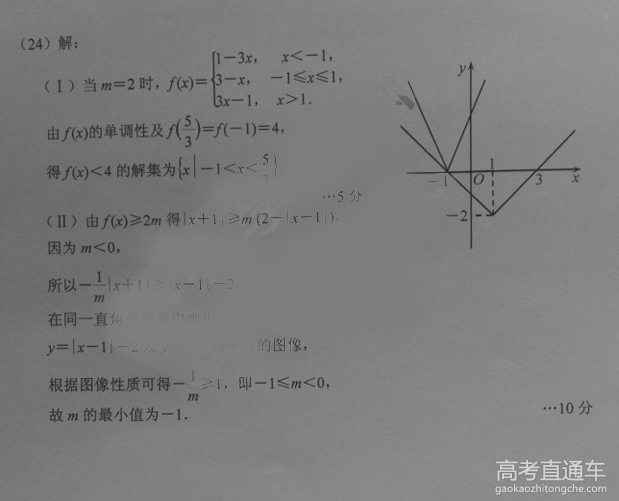 (24)解:
(Ⅰ)当m=2时,f(x)={1-3x, x<-1,
3-x, -1≤x≤1,
3x-1, x>1.
由f(x)的单调性及f(5/3)=f(-1)=4,
得f(x)<4的解集为{x|-1<x<5
…5分
(Ⅱ)由f(x)≥2m得|x+1|≥m(2-|x-1|),
因为m<0,
所以-1/m|x+1|≥|x-1|-2
在同一直角
y=|x-1|-2及y= 的图像,
根据图像性质可得-1/m≥1,即-1≤m<0,
故m的最小值为-1.
…10分
y
-1 O 1 3 x
-2
高考直通车
gaokaozhitongche.com